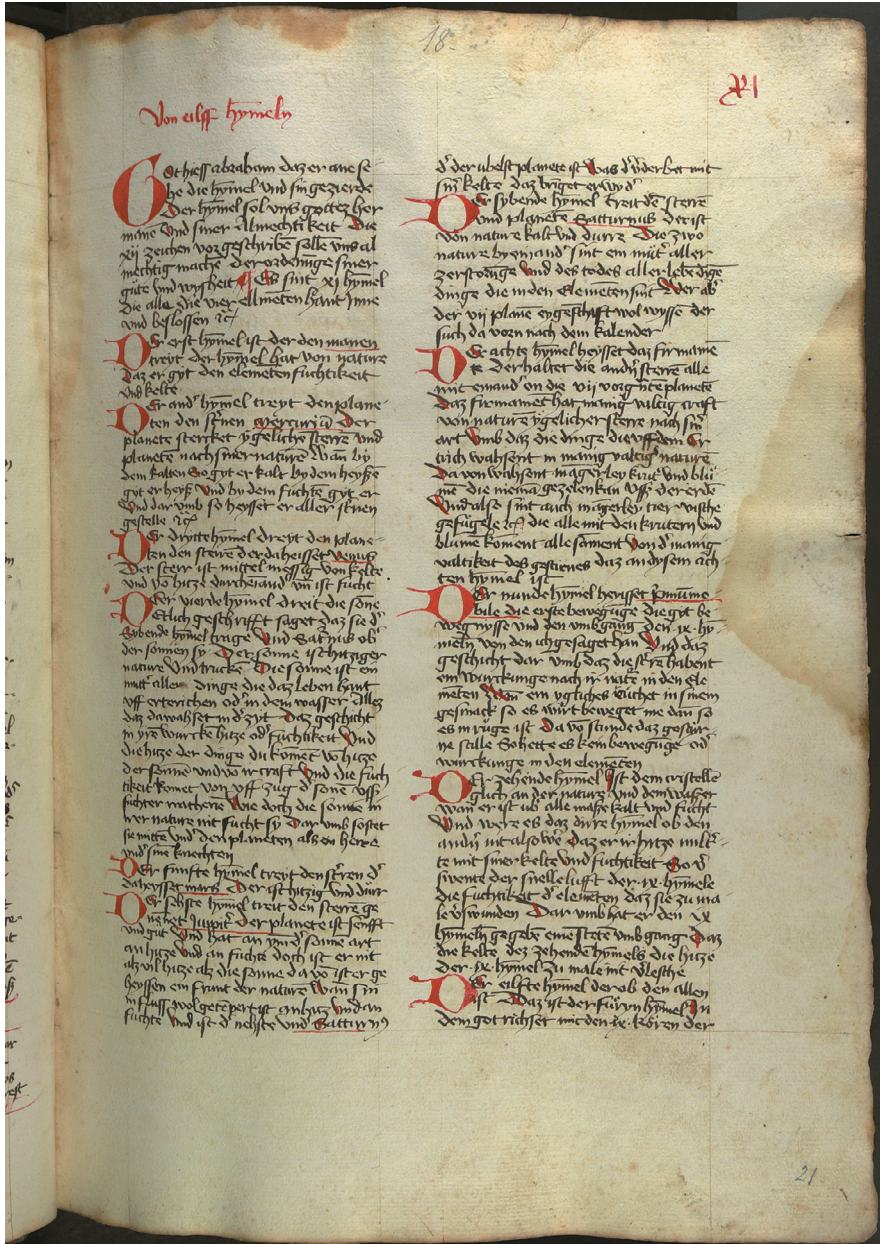 18.
XXI
Von eilff hymeln
Es hiess abraham daz er ane se-
he die hymel vnd sin gezierde
Der hymel sol vns gottez her
mane vnd siner almechtikeit die
xij zeichen vorgeschribē sollē vns al
mechtig machē der ordenūge siner
güte vnd wysheit Es sint xj hymel
die alle die vier ellmeten hant jnne
vnd beslossen ꝛc
Er erst hymel ist der den manen
treyt der hymel hat von nature
Daz er gyt den elemeten fuchtikeit
vnd kelte
Er and' hymel treyt den plane-
ten den st'nen mercuriū Der
planete stercket ygeliche sterre vnd
planetē nach siner naturē Wan by
dem kalten So gyt er kalt by dem heyßē
gyt er heyß vnd by dem fuchtē gyt er
Vnd dar vmb so heysset er aller st'nen
gestelle ꝛc
Er drytte hymel dreyt den plane-
ten den sterrē der da heisset venus
Der sterr ist mittel messig von kelte
vnd vō hitze durcheinand' vn ist fucht
Der vierde hymel dreit die sonē
Etlich geschrifft saget daz sie d'
Sybende hymel trage Vnd Sat'nus ob'
der sonnen sy Der sonne ist hitziger
nature Vnd truckē Die sonne ist ein
mutt' aller dinge die daz leben hant
vff erterichen od' in dem wasser Allez
daz da wahset in d' zyt Daz geschicht
in yrē wurcke hitze od' fuchtikeit Vnd
die hitze der dinge du kōmet vō hitze
der sonnē vnd vō ir craft Vnd die fuch
tikeit komet von vff zug d' sonē vss
fuchter matherie Wie doch die sonne in
irer nature nit fucht sy Dar vmb so stet
sie mitte vnd' den planeten als ein herre
vnd' sinē knechten
Er funfte hymel treyt den st'ren d'
da heysset mars Der ist hitzig vnd dürr
Er sehste hymel treit den sterrē ge
nenet Juppit' Der planete ist senfft
vnd gut Vnd hat an ym d' sonne art
an hitze Vnd an fuchte doch ist er nit
alz vil hitze alz die sonne da vō ist er ge
heyssen ein frunt der naturē Wan sin
in fluss wol getēpert ist an hitz vnd an
fuchte Vnd ist d' nehste vnd' Satturn9
d' der ubelst planete ist Was d' v'derbet mit
sin' kelte daz br'get er wyd'
Er sybende hymel treit dē sterrē
vnd planetē Satturnus der ist
von nature kalt vnd durre Die zwo
nature by einand' sint ein mut' aller
zerstorūge Vnd des todes aller lebēdigē
dinge die in den Elemētē sint Wer ab'
der vij planē eygeschift wol wyssē der
such da vorn nach dem kalender
Er achte hymel heysset daz firmamē
te Der haltet die and'n sterre alle
mit einand' on die vij vorgn̄te planetē
Daz firmamet hat manig valtig craft
von naturē ygelicher sterre nach sin'
art Vmb daz die dinge die vff dem Er
trich wahsent in manig valtig' naturē
Da von wahsent mag'erley krut' vnd blu
mē die niemā gezelen kan vss der erdē
Vnd also sint auch mag'erley tier vische
gefügele ꝛc die alle mit den krutern vnd
blumē koment alle sament Von d' manig
valtikeit des gestirnes daz an dysem ach
ten hymel ist
Er nunde hymel heisset p'mum mo-
bile die erste bewegūge die gyt be
wegnysse vnd den vmbgang den .ix. hy-
meln von den ich gesaget han Vnd daz
geschicht dar vmb daz die st'rē habent
ein wurckunge nach ir nat'e in den ele
meten Wan ein ygliches ruchet in sinem
gesmack so es wirt beweget me dan so
es in rüge ist Da vō stunde daz gestir-
ne stille So hette es kein bewegūge od'
wurckunge in den elemeten
Er zehende hymel Ist dem cristellē
glich an der nature vnd dem waßer
wan er ist ub' alle maße kalt vnd fucht
Vnd were es daz dirre hymel ob den
and'n nit also wē Daz er ir hitze milt'-
te mit siner kelte vnd fuchtikeit So v'
swente der snelle lufft der .ix. hymele
die fuchtikeit d' elemeten daz sie zu ma
le v'swunden Dar vmb hat er den ix
hymeln gegebē eine stetē vmbgang Daz
die kelte dez zehende hymels die hitze
der .ix. hymel zu male nit v'lesche
Er eilfte hymel der ob den allen
ist Daz ist der fürȳn hymel In
dem got richset mit den ix. kören der
21